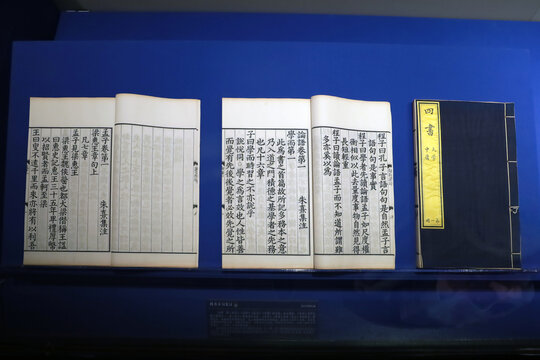 四書
大學
中庸
程子曰孔子言語句句是自然孟子言
語句句是事實
程子曰學者先讀論語孟子如尺度權
衡相似以此去量度事物自然見得
長短輕重
程子曰讀論語孟子而不知道所謂雖
多亦奚以為
論語卷第一 朱熹集注
學而第一
此為書之首篇故所記多務本之意
乃入道之門積德之基學者之先務
也凡十六章
子曰學而時習之不亦說乎
說悅同○學之為言效也人性皆善
而覺有先後後覺者必效先覺之所
孟子卷第一 朱熹集注
梁惠王章句上
凡七章
孟子見梁惠王
梁惠王魏侯罃也都大梁僭稱王諡
曰惠史記惠王三十五年卑禮厚幣
以招賢者而孟軻至梁
王曰叟不遠千里而來亦將有以利吾